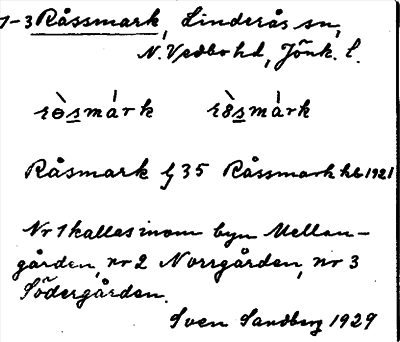 1-3 Råssmark, Linderås sn,
N. Vedbo hd, Jönk. l.
rò̀smárk rò̀smàrk
Råsmark Gj 35 Råssmark hb 1921
Nr 1 kallas inom byn Mellan-
gården, nr 2 Norrgården, nr 3
Södergården.
Sven Sandberg 1929